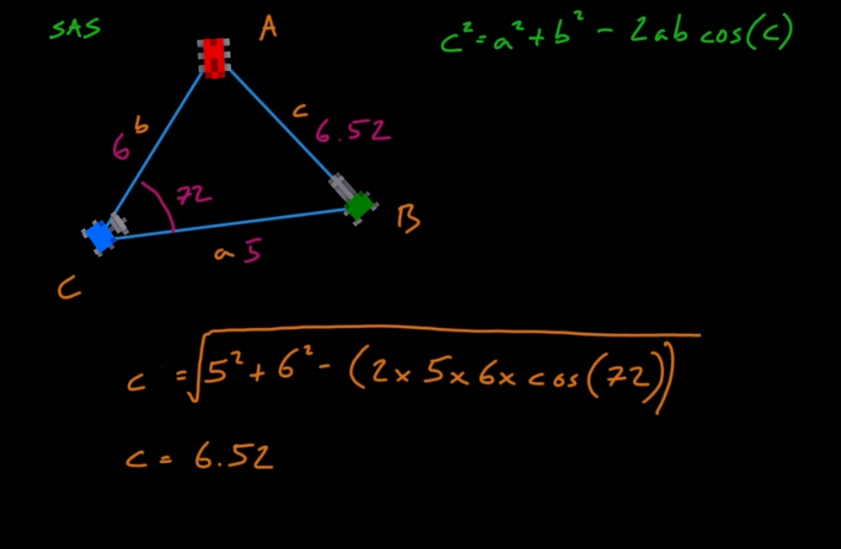 SAS
A
c² = a² + b² - 2ab cos(c)
b
6
c
6.52
72
B
a 5
C
c = √5² + 6² - (2 x 5 x 6 x cos(72))
c = 6.52